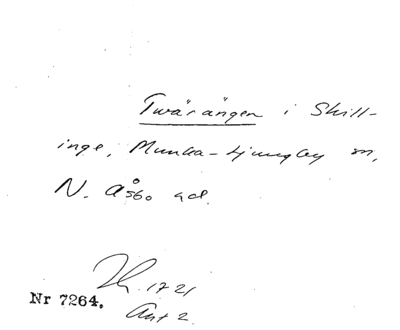 Twärängen i Skill-
inge, Munka-Ljungby sn,
N. Åsbo hd.
1721
Akt 2
Nr 7264.